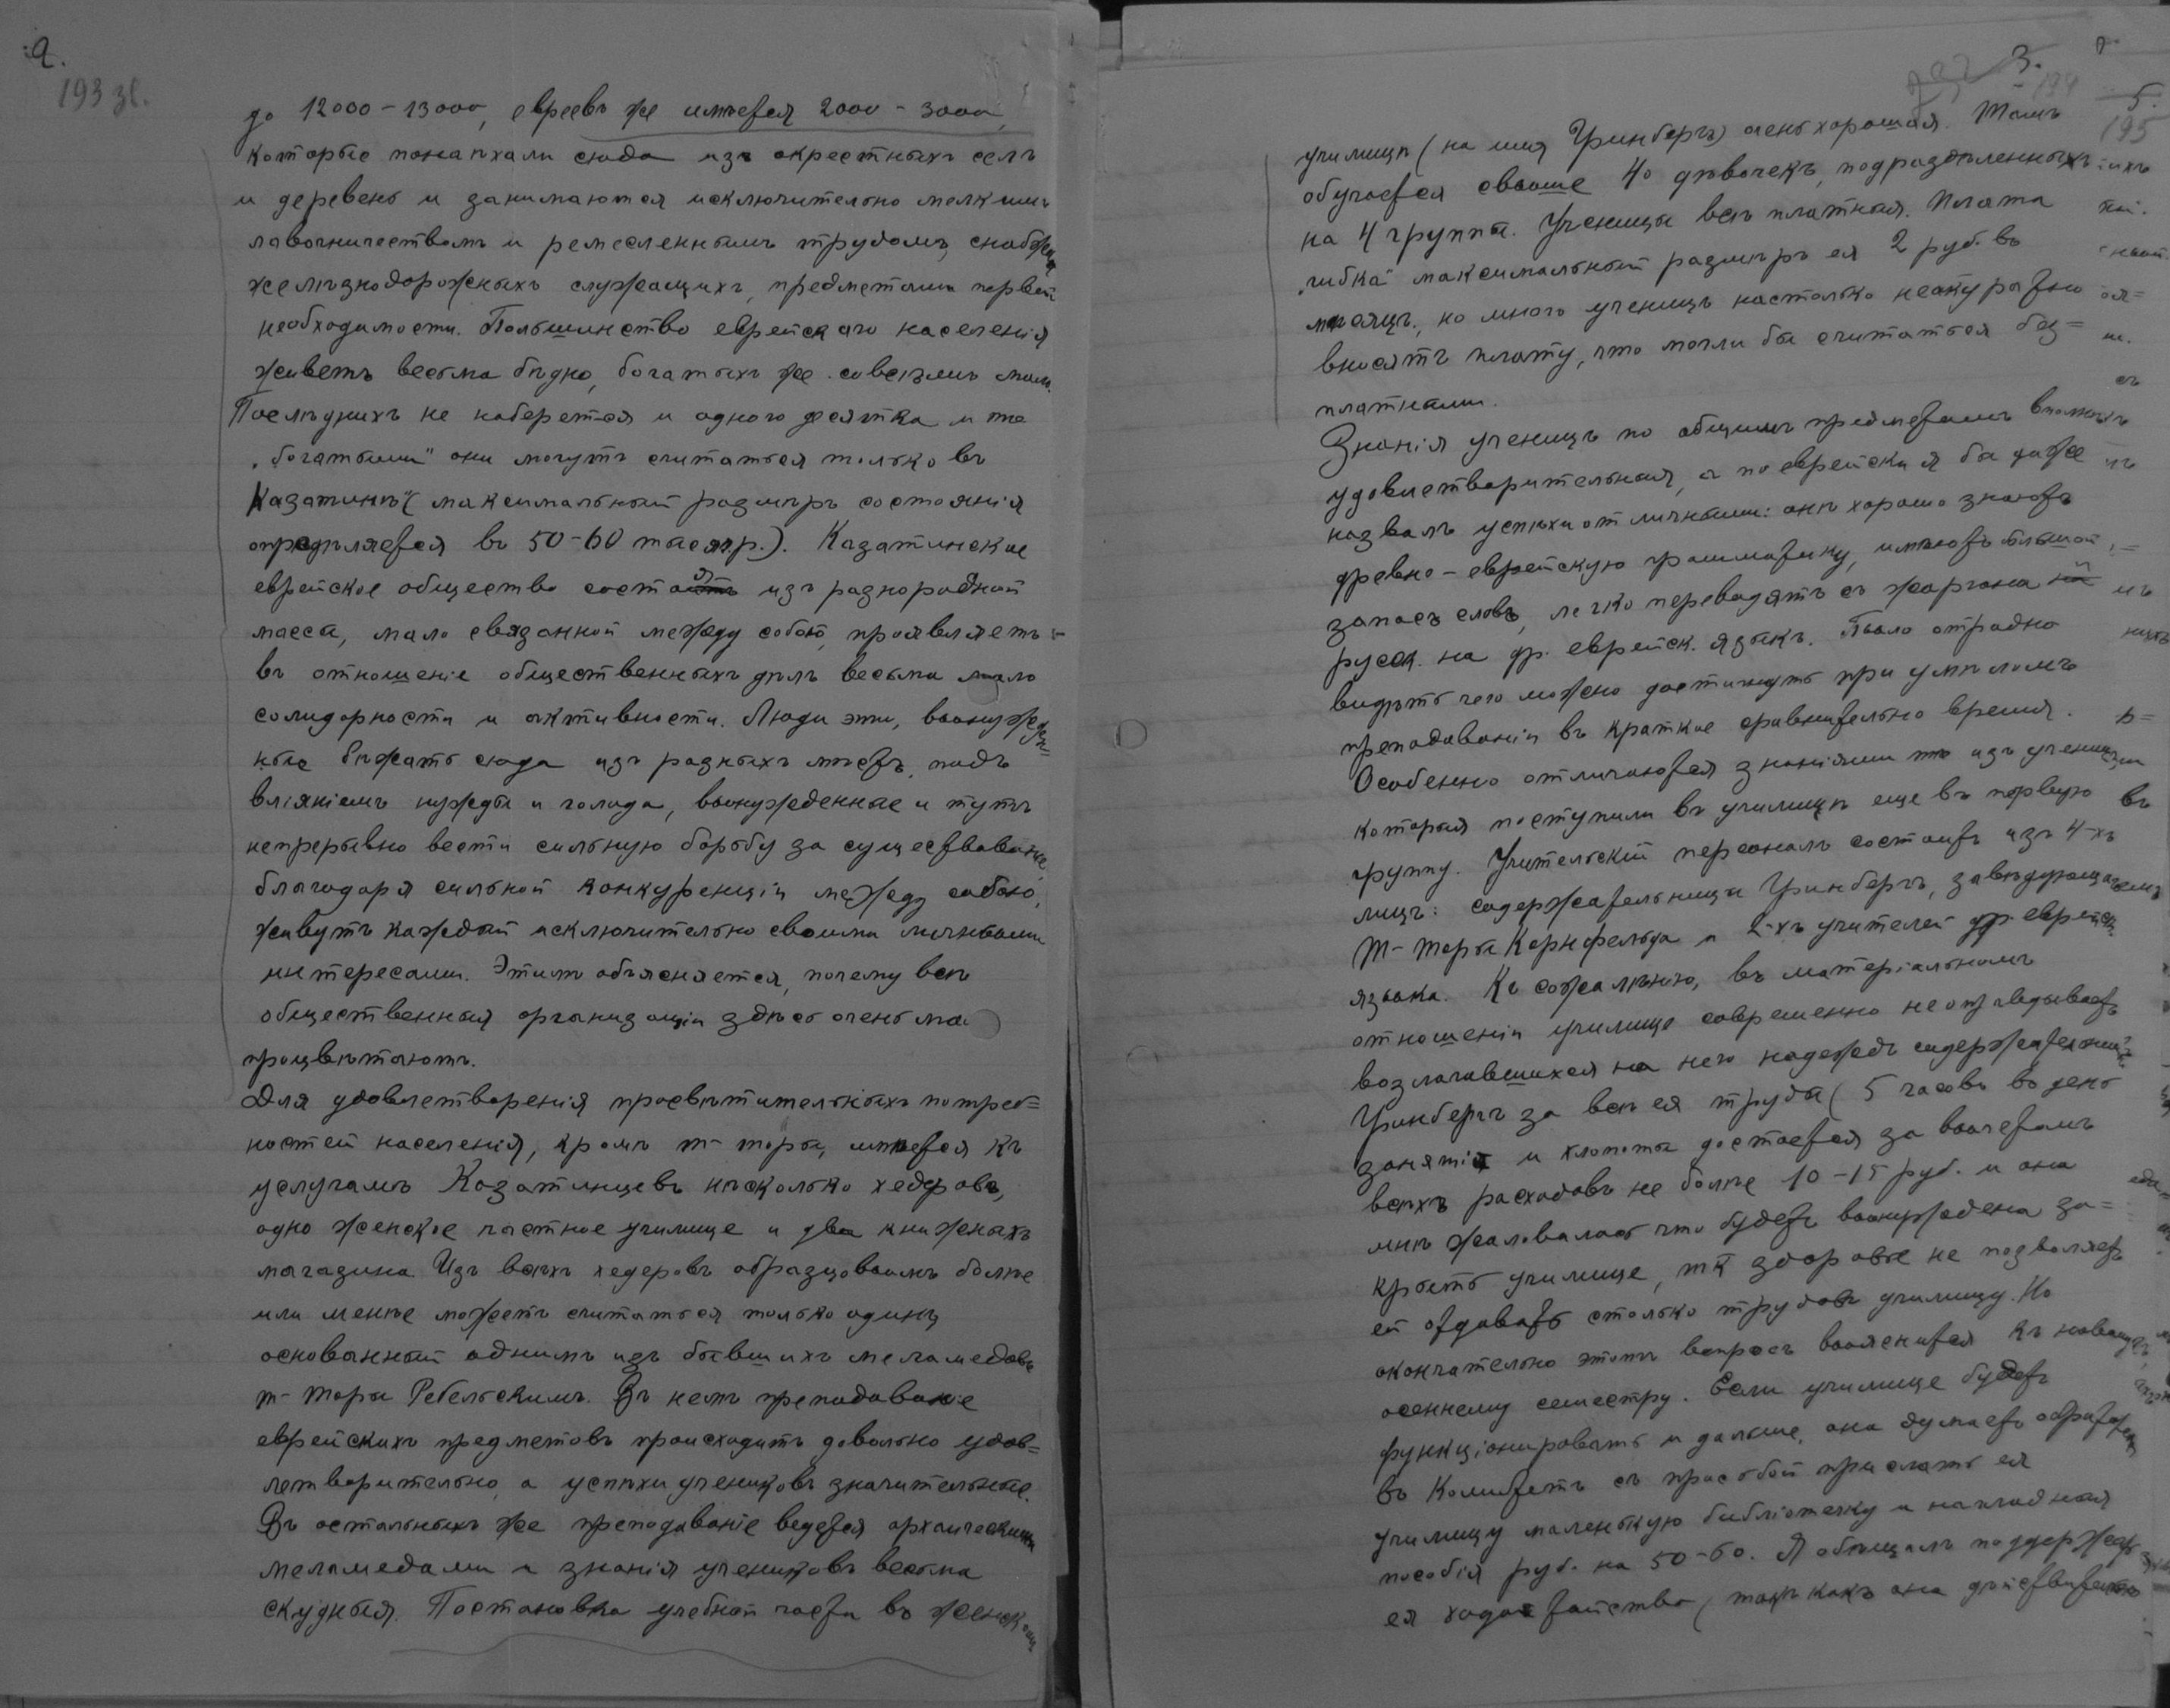 2.
193 зв.
до 12000-13000, евреевъ же имѣется 2000-3000,
которые понаѣхали сюда изъ окрестныхъ селъ
и деревень и занимаются исключительно мелкимъ
лавочничествомъ и ремесленнымъ трудомъ, снабжая
желѣзнодорожныхъ служащихъ, предметами первой
необходимости. Большинство еврейскаго населенія
живетъ весьма бѣдно, богатыхъ же совсѣмъ мало.
Послѣднихъ не наберется и одного десятка и те
„богатыми" они могутъ считаться только въ
Казатинѣ (максимальный размѣръ состоянія
опредѣляется въ 50-60 тысяч.р.). Казатинское
еврейское общество состоя изъ разнородной
массы, мало связанной между собою, проявляетъ
въ отношеніе общественныхъ дѣлъ весьма мало
солидарности и активности. Люди эти, вынужден=
ные бѣжать сюда изъ разныхъ мѣстъ, подъ
вліяніемъ нужды и голода, вынужденные и тутъ
непрерывно вести сильную борьбу за существованіе,
благодаря сильной конкуренціи между собою,
живутъ каждый исключительно своими личными
интересами. Этимъ объясняется, почему всѣ
общественныя организаціи здѣсь очень ма
процвѣтаютъ.
Для удовлетворенія просвѣтительныхъ потреб=
ностей населенія, кромѣ т-торы, имѣется къ
услугамъ Козатинцевъ нѣсколько хедеровъ,
одно женское частное училище и два книжныхъ
магазина. Изъ всѣхъ хедеровъ образцовымъ болѣе
или менѣе можетъ считаться только одинъ,
основанный однимъ изъ бывшихъ меламедовъ
т-торы Ребельскимъ. Въ немъ преподованіе
еврейскихъ предметовъ происходитъ довольно удов=
летворительно, а успѣхи учениковъ значительные.
Въ остальныхъ же преподованіе ведется архаическими
меламедами и знанія учениковъ весьма
скудныя. Постановка учебной части въ женскомъ
3.
194
5.
195
училищѣ (на имя Гринбергъ) очень хорошая. Тамъ
обучается свыше 40 дѣвочекъ, подраздѣленныхъ
на 4 группы. Ученицы всѣ платныя. Плата
гибка: максимальный размѣръ ея 2 руб. въ
мѣсяцъ, но много ученицъ настолько неакуратно
вносятъ плату, что могли бы считаться без=
платными.
Знанія ученицъ по общимъ предметамъ вполнѣ
удовлетворительныя, а по еврейски я бы даже
назвалъ успѣхи отличными: онѣ хорошо знаютъ
древне-еврейскую грамматику, имѣютъ большой
запасъ словъ, легко переводятъ съ жаргона и
русск. на др. еврейск. языкъ. Было отрадно
видѣть чего можно достигнуть при умѣломъ
преподованіи въ краткое сравнительно время.
Особенно отличаются знаніями тѣ изъ ученицъ,
которыя поступили въ училищѣ еще въ первую
группу. Учительскій персоналъ состоитъ изъ 4-хъ
лицъ: содержательницы Гринбергъ, завѣдующаго
Т-Торы Корнфельда и 2-хъ учителей др. еврейск.
языка. Къ сожалѣнію, въ матеріальномъ
отношеніи училище совершенно не оправдываетъ
возлагавшихся на него надеждъ содержательницы.
Гринбергъ за всѣ ея труды (5 часовъ въ день
занятій и хлопоты достается за вычетомъ
всѣхъ расходовъ не болѣе 10-15 руб. и она
мнѣ жаловалась что будетъ вынуждена за=
крыть училище, тк здоровье не позволяетъ
ей отдавать столько трудовъ училищу. Но
окончательно этотъ вопросъ выяснится къ новому
осеннему семестру. Если училище будетъ
функціонировать и дальше, она думаетъ обратиться
въ Комитетъ съ просьбой прислать ея
училищу маленькую библіотечку и наглядныя
пособія руб. на 50-60. Я обѣщалъ поддержать
ея ходатайство (такъ какъ она дѣйствительно